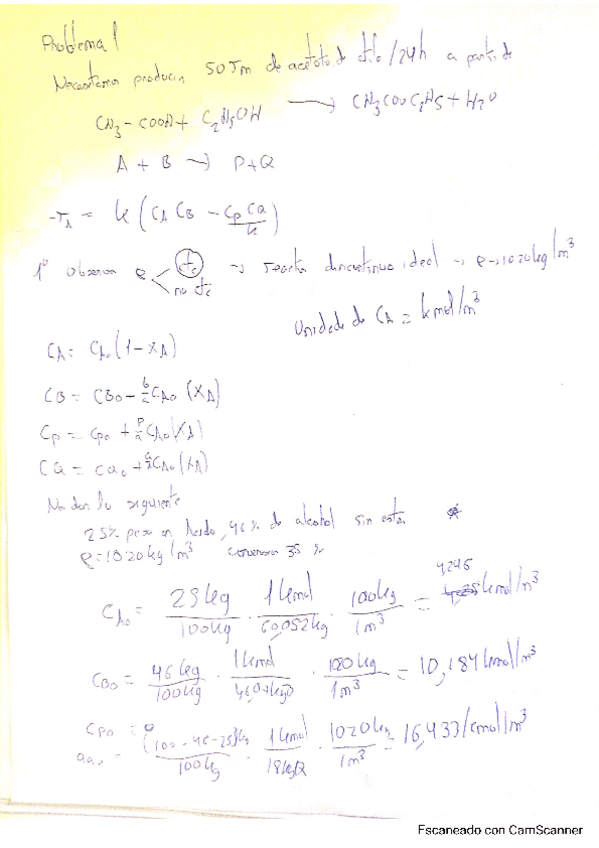 Problema 1
Necesitamos producir 50 Tm de acetato de etilo/24h a partir de
CH3-COOH + C2H5OH → CH3COOC2H5 + H2O
A + B → P+Q
-rA = k (CA CB - CP CQ / k)
1º Observar ρ cte → reactor discontinuo ideal → ρ=1020kg/m³
no cte
Unidades de CA = kmol/m³
CA = CA0 (1-XA)
CB = CB0 - b/a CA0 (XA)
CP = CP0 + p/a CA0 (XA)
CQ = CQ0 + q/a CA0 (XA)
Nos dan lo siguiente
25% peso en ácido, 46% de alcohol sin
ρ=1020kg/m³ conversion 35 %
CA0 = 25kg/100kg · 1kmol/60,052kg · 1020kg/1m³ = 4,246 kmol/m³
CB0 = 46kg/100kg · 1kmol/ · 1020kg/1m³ = 10,184 kmol/m³
CP0 = 0
CQ0 = (100-46-25)kg/100kg · 1kmol/18kgQ · 1020kg/1m³ = 16,433 kmol/m³
Escaneado con CamScanner